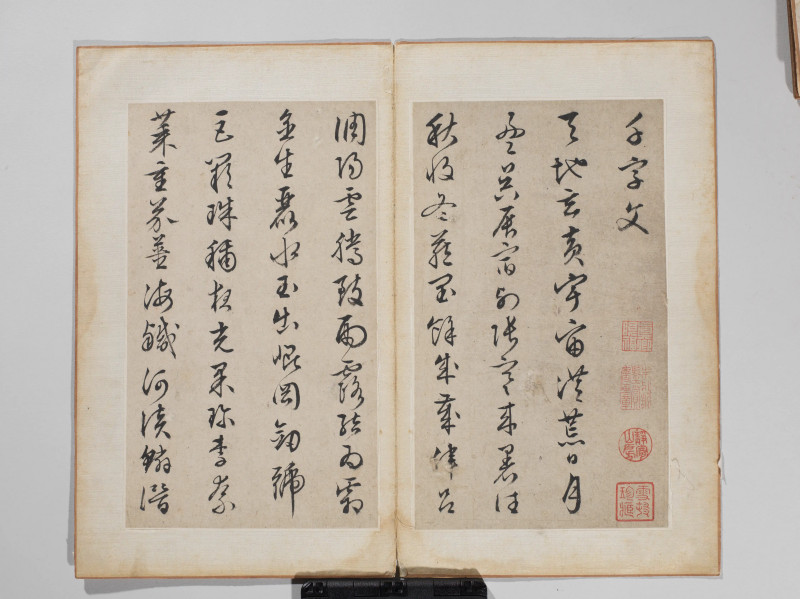 千字文
天地玄黃宇宙洪荒日月
盈昃辰宿列張寒來暑往
秋收冬藏閏餘成歲律呂
調陽雲騰致雨露結為霜
金生麗水玉出崐岡劒號
巨闕珠稱夜光果珍李柰
菜重芥薑海鹹河淡鱗潛